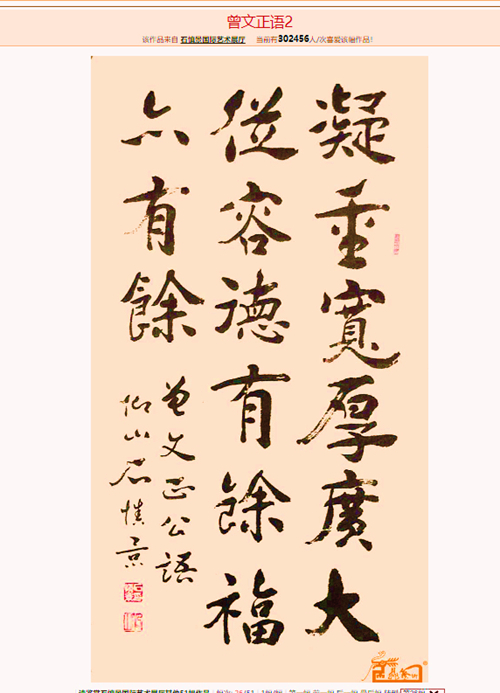 曾文正语2
该作品来自 石慎景国际艺术展厅 当前有302456人/次喜爱该幅作品！
凝重寬厚廣大
從容德有餘福
亦有餘
曾文正公語
仰山石慎景